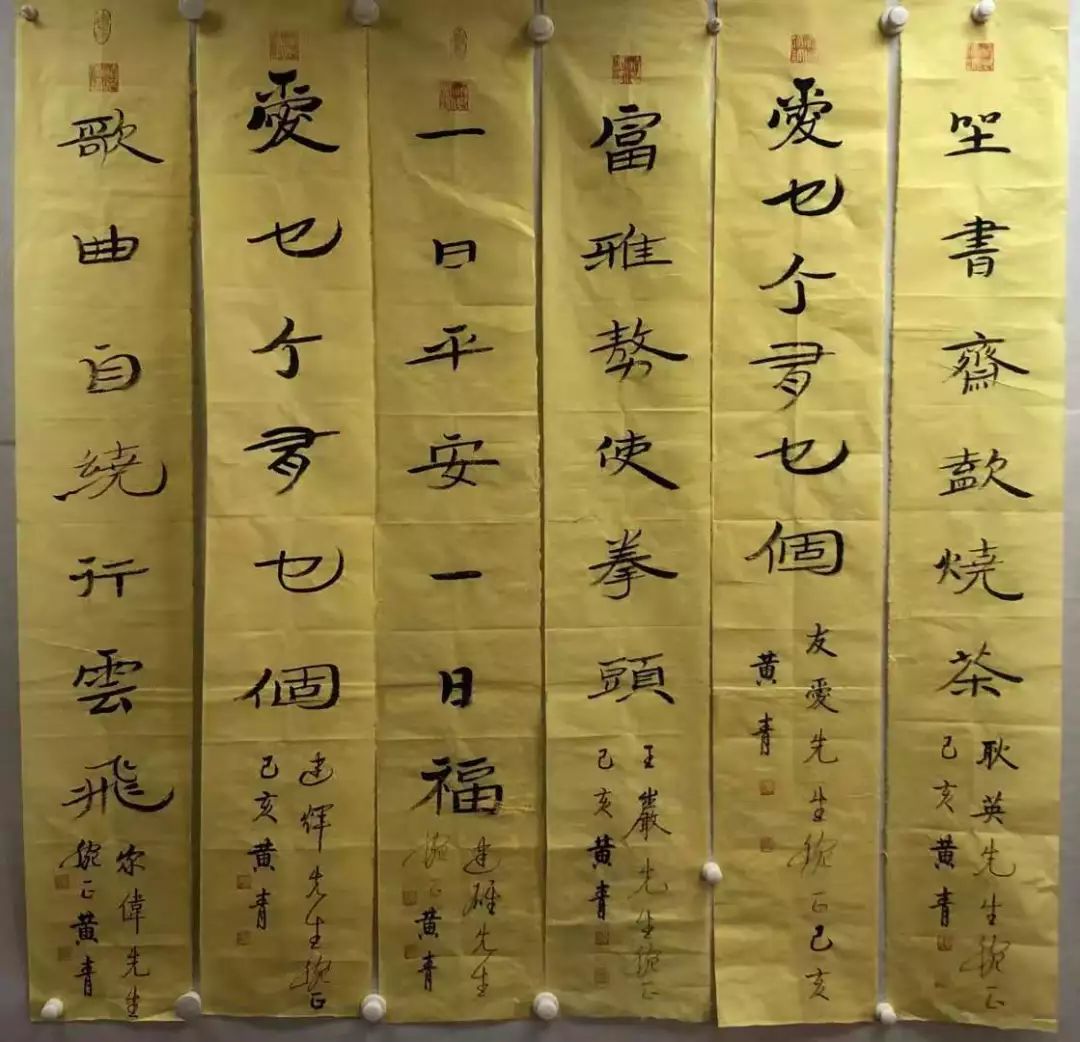 坐書齋燒茶
耿英先生正
己亥黃青
愛乜个乜個
友愛先生正己亥
黃青
富雅使拳頭
王巖先生正
己亥黃青
一日平安一日福
建雄先生
正黃青
愛乜个乜個
建輝先生正
己亥黃青
歌曲自繞行雲飛
家偉先生
正黃青